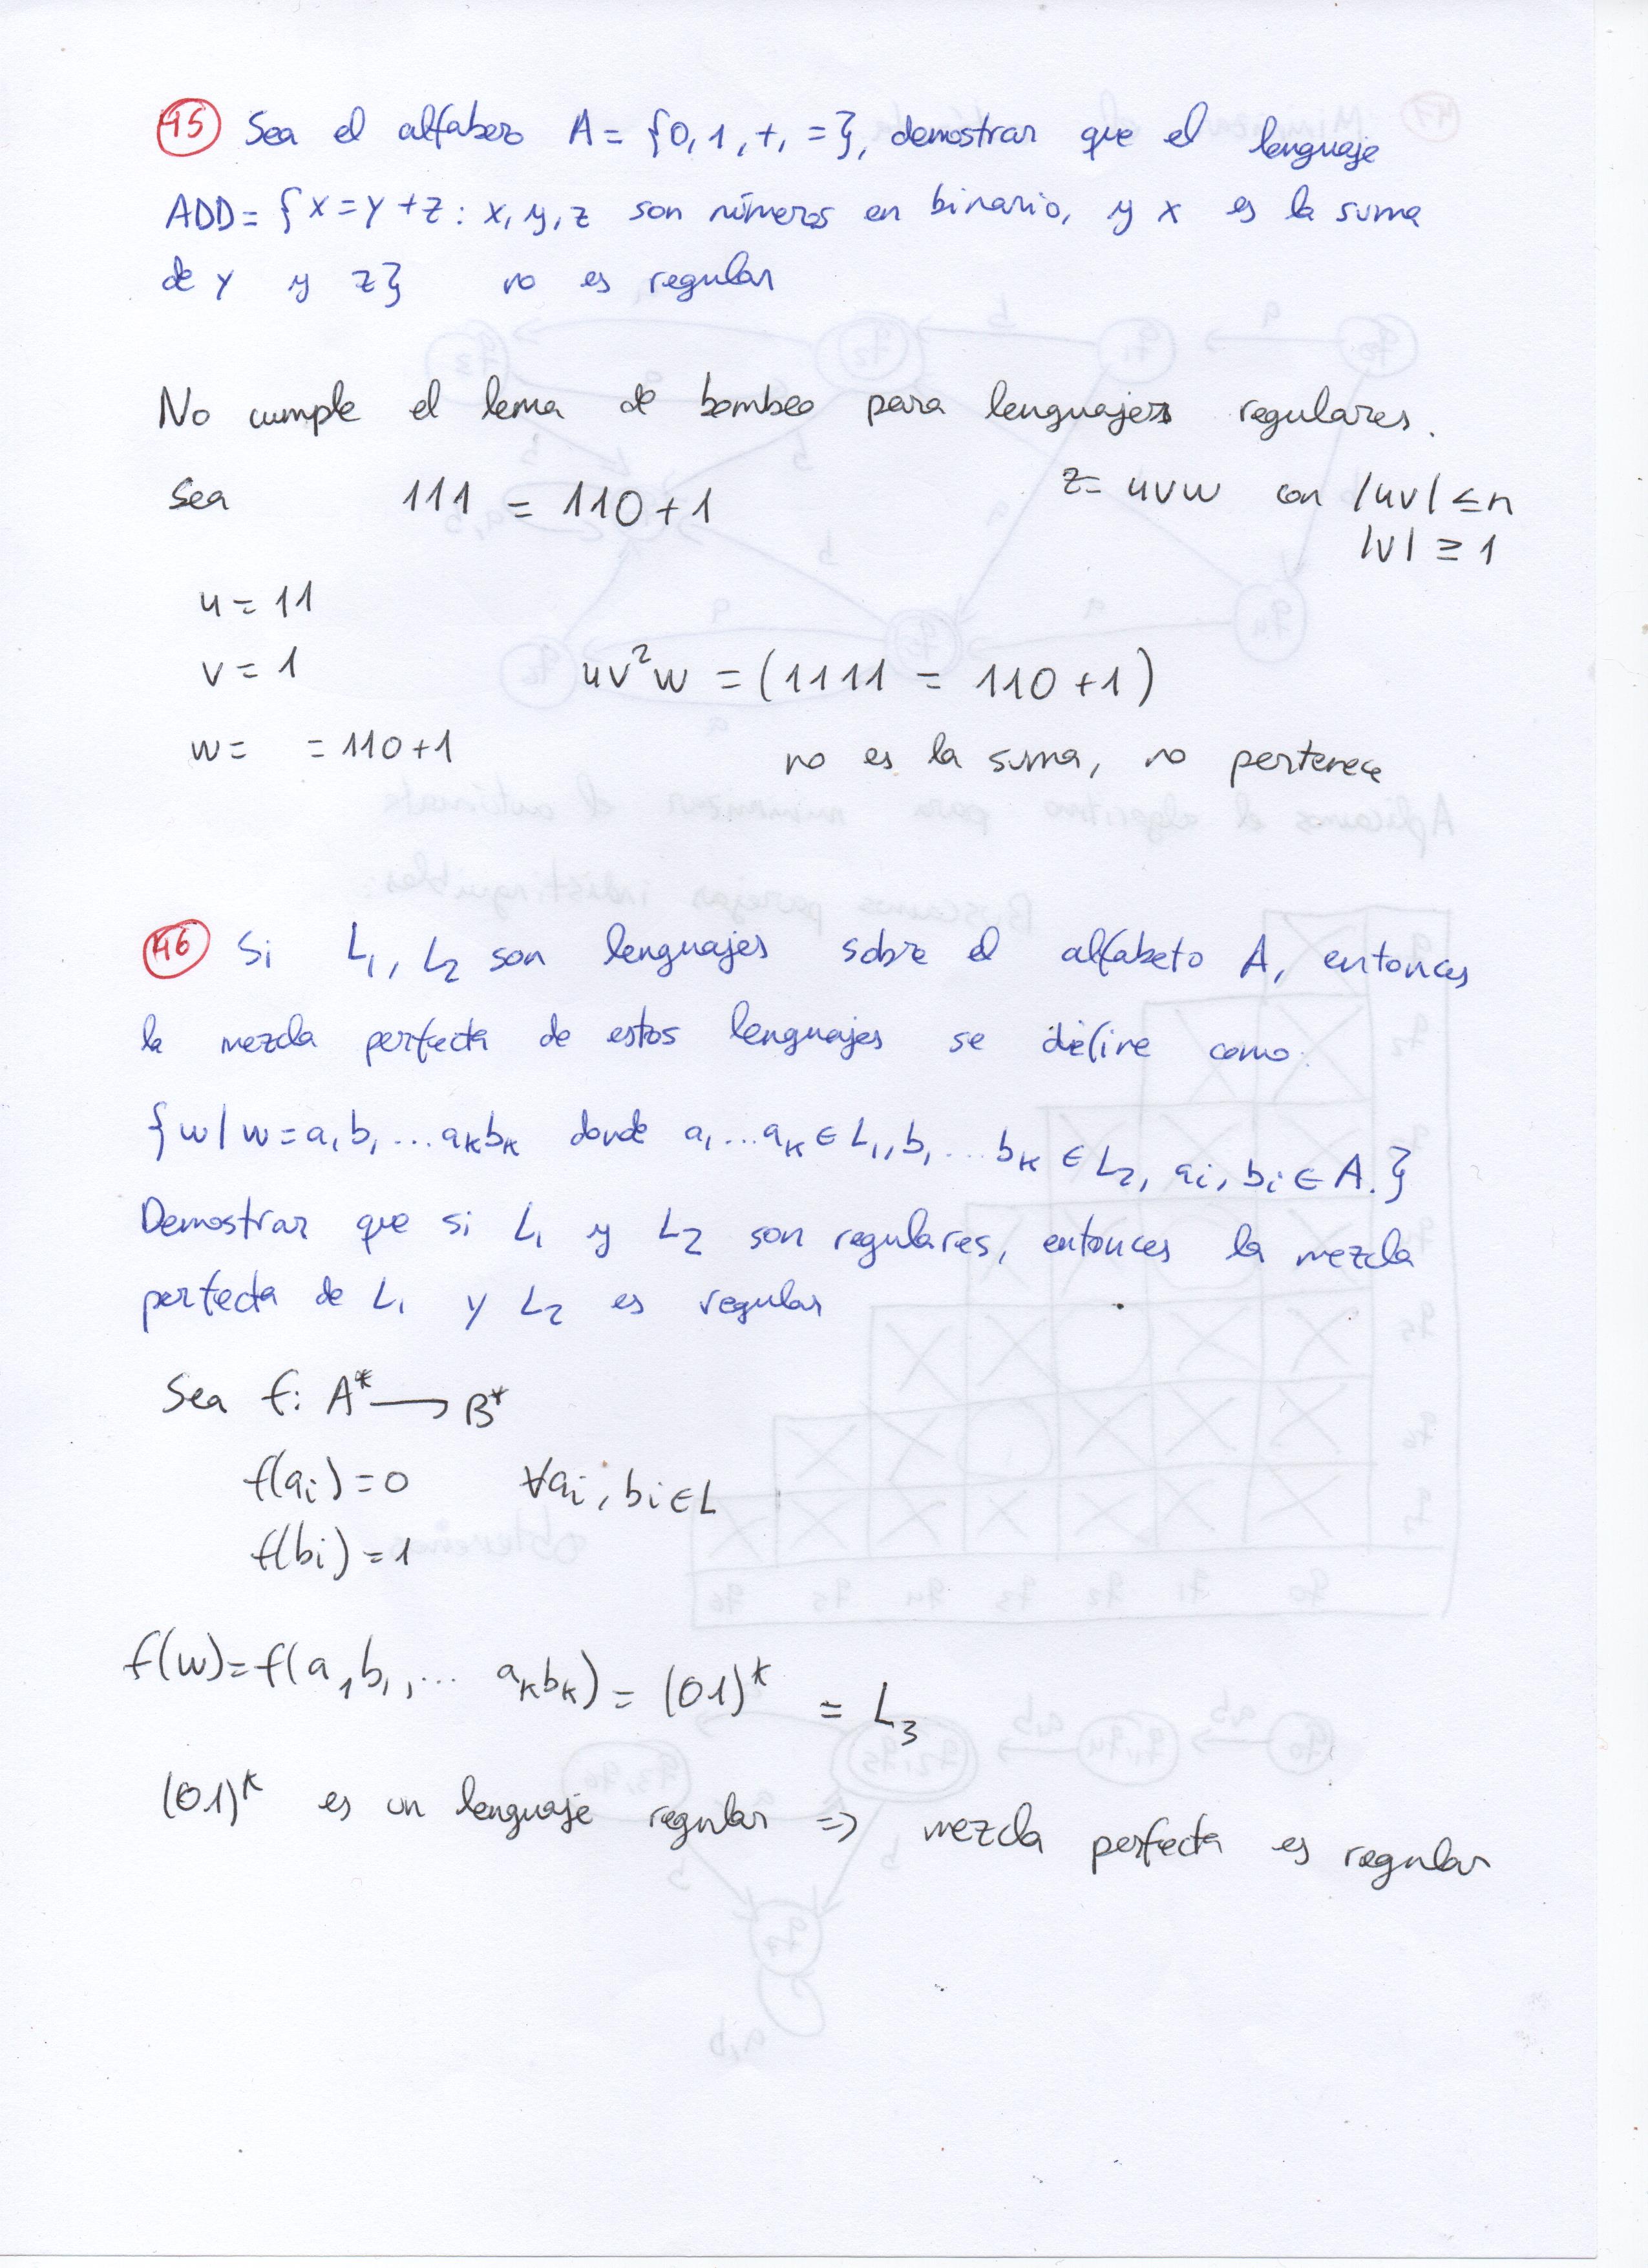 45 Sea el alfabero A = {0, 1, +, =}, demostrar que el lenguaje
ADD = { x = y + z : x, y, z son números en binario, y x es la suma
de y y z} no es regular
No cumple el lema de bombeo para lenguajes regulares.
Sea 111 = 110+1 z = uvw con |uv| ≤ n
|v| ≥ 1
u = 11
v = 1 uv²w = (1111 = 110+1)
w = = 110+1 no es la suma, no pertenece
46 Si L₁, L₂ son lenguajes sobre el alfabeto A, entonces
la mezcla perfecta de estos lenguajes se define como:
{w | w = a₁b₁ ... aₖbₖ donde a₁ ... aₖ ∈ L₁, b₁ ... bₖ ∈ L₂, aᵢ, bᵢ ∈ A.}
Demostrar que si L₁ y L₂ son regulares, entonces la mezcla
perfecta de L₁ y L₂ es regular
Sea f: A* → B*
f(aᵢ) = 0 ∀aᵢ, bᵢ ∈ L
f(bᵢ) = 1
f(w) = f(a₁b₁, ... aₖbₖ) = (01)ᵏ = L₃
(01)ᵏ es un lenguaje regular ⇒ mezcla perfecta es regular